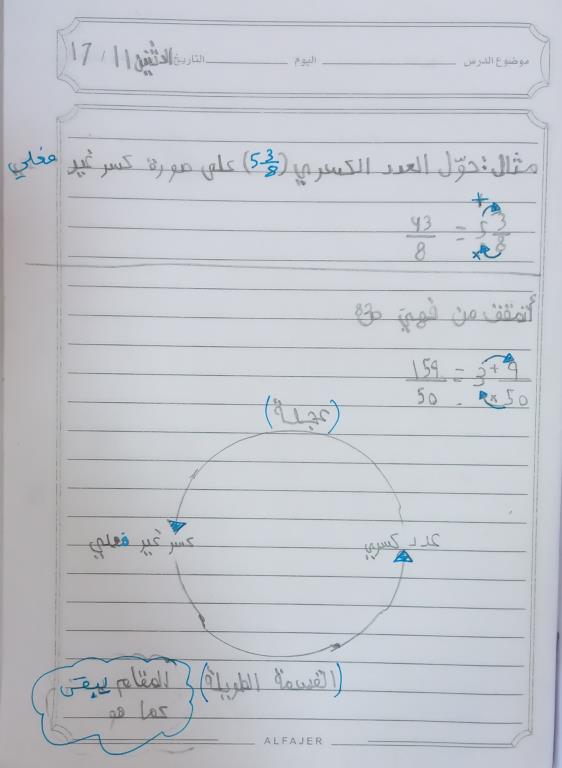 موضوع الدرس اليوم التاريخ الاثنين 11 / 17
مثال: حوّل العدد الكسري (5 3/8) على صورة كسر غير فعلي
5 3/8 = 43/8
أتحقق من فهمي ص 83
3 9/50 = 159/50
(عجلة)
عدد كسري
كسر غير فعلي
(القسمة الطويلة)
المقام يبقى
كما هو
ALFAJER